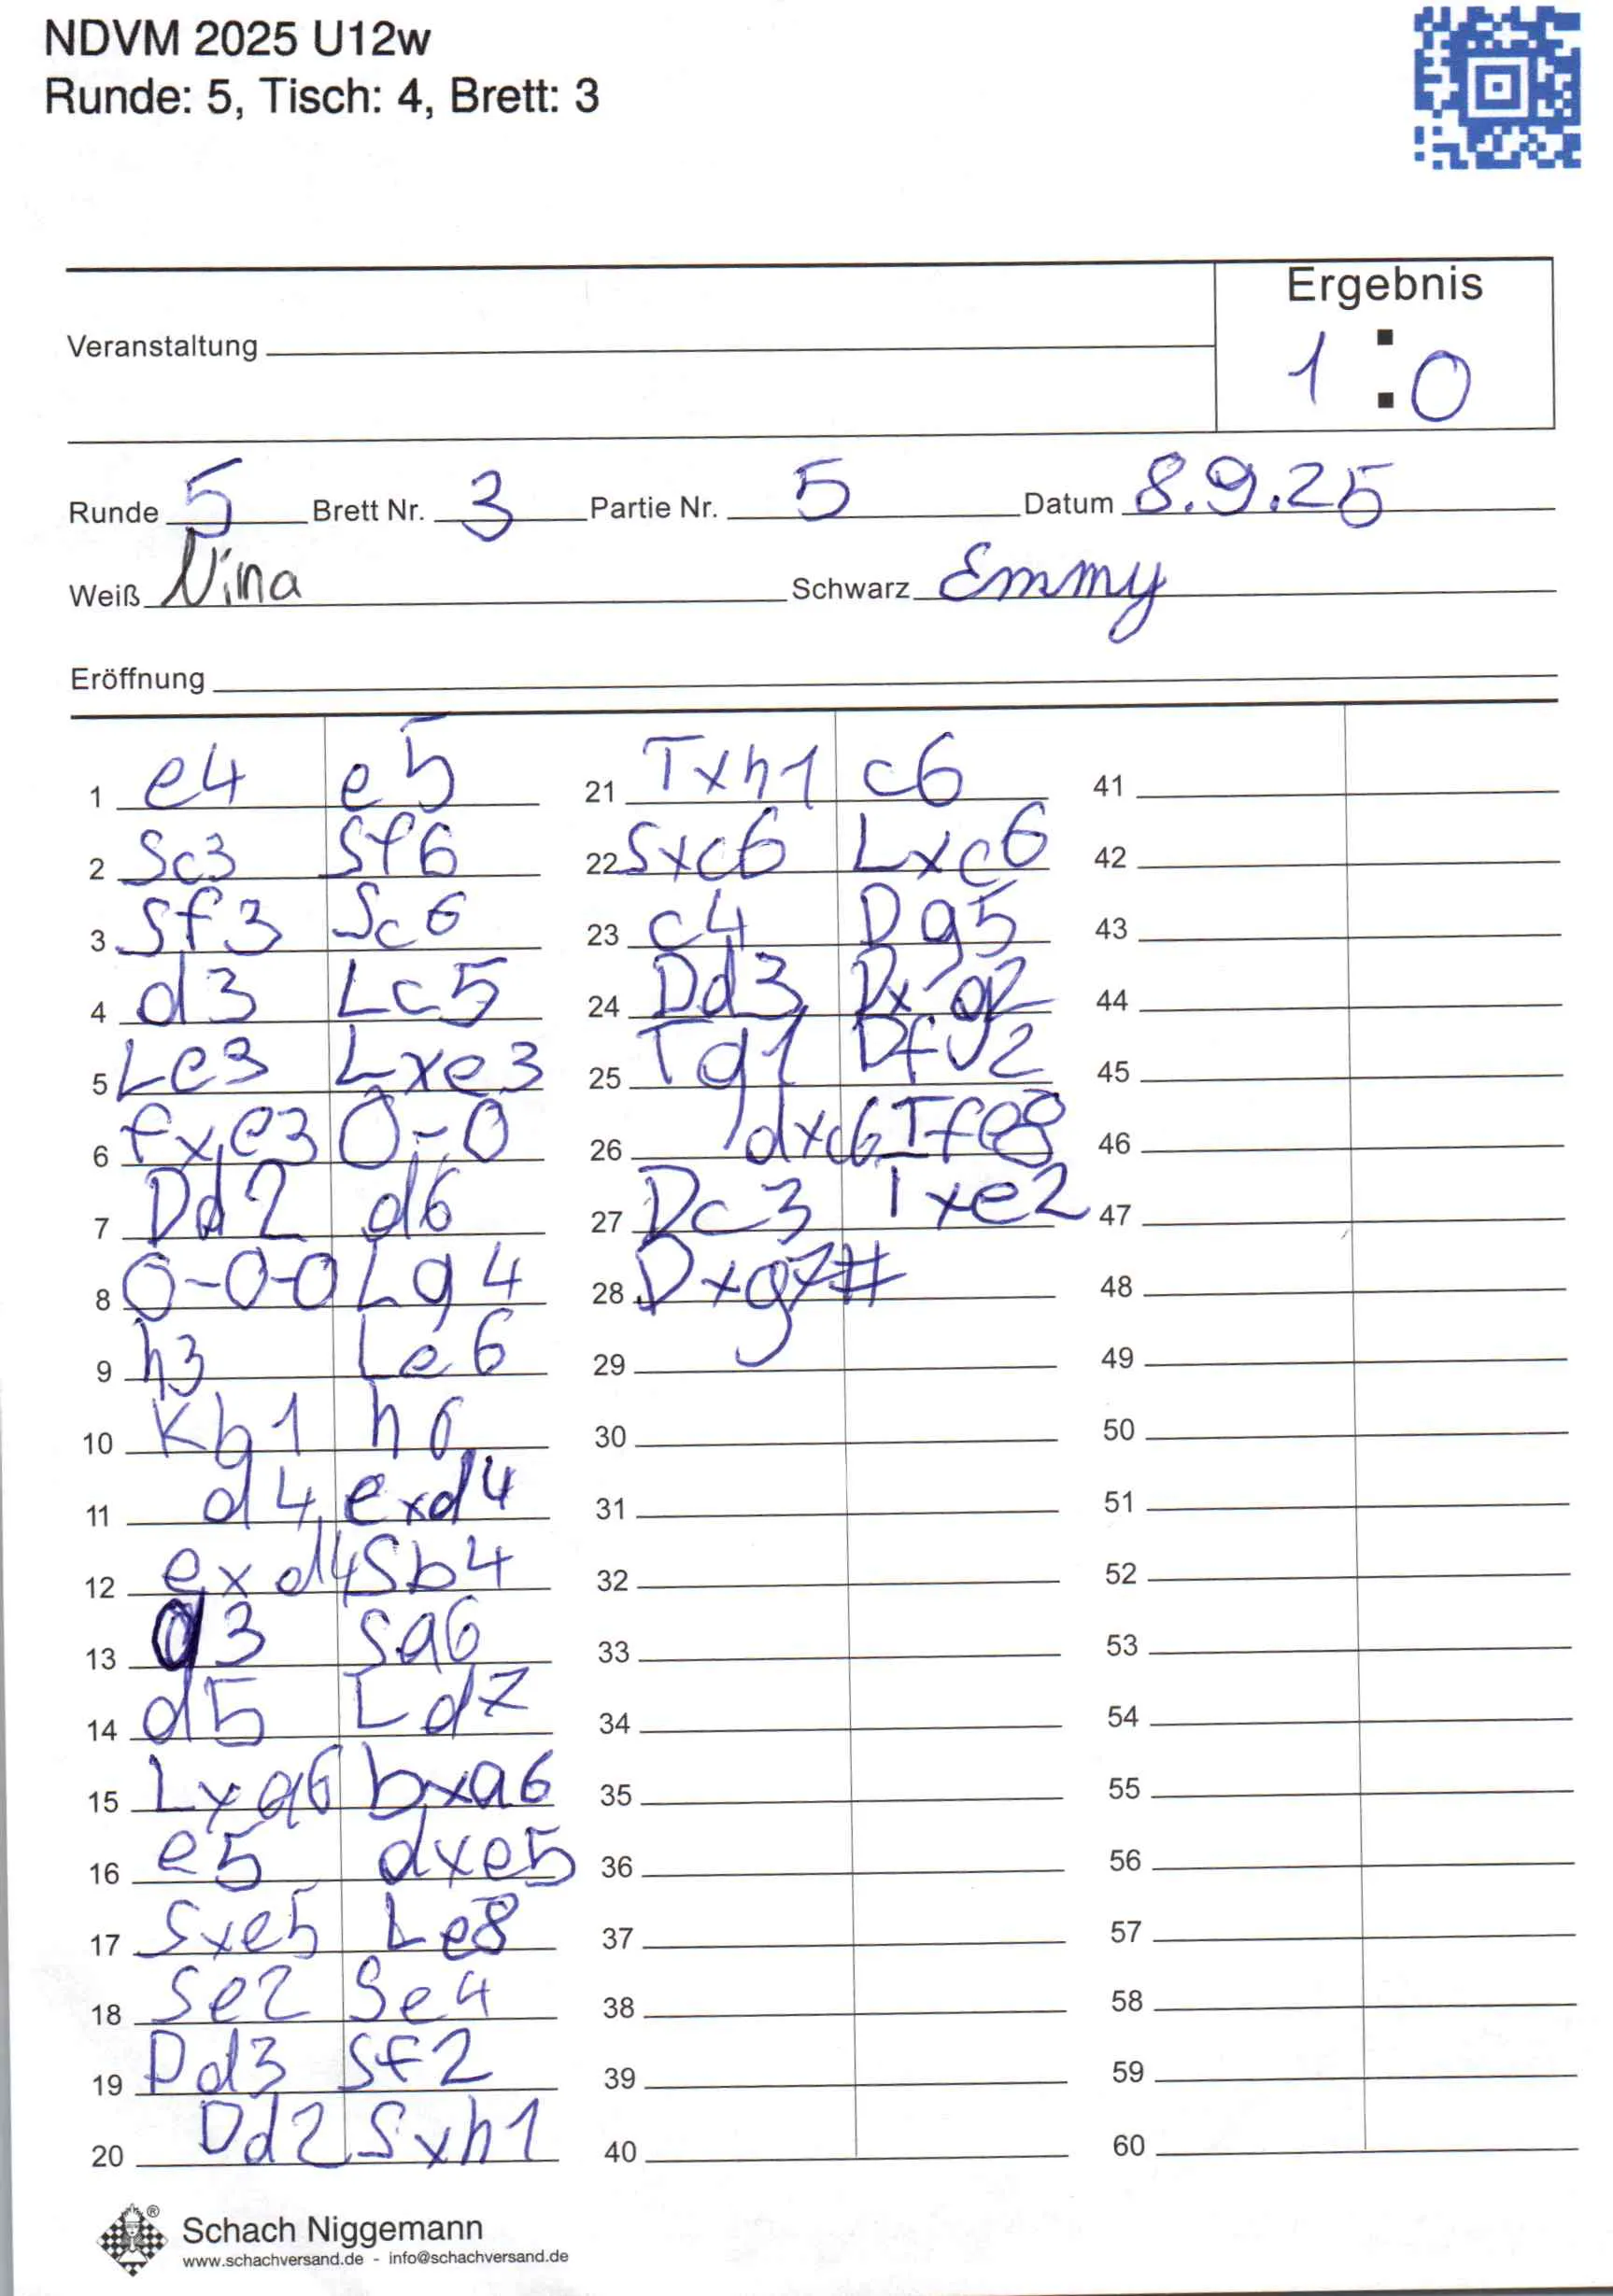 NDVM 2025 U12w
Runde: 5, Tisch: 4, Brett: 3
Ergebnis
Veranstaltung
1 : 0
Runde 5 Brett Nr. 3 Partie Nr. 5 Datum 8.9.25
Weiß Nina Schwarz Emmy
Eröffnung
1 e4 e5
2 Sc3 Sf6
3 Sf3 Sc6
4 d3 Lc5
5 Le3 Lxe3
6 fxe3 0-0
7 Dd2 d6
8 0-0-0 Lg4
9 h3 Le6
10 Kb1 h6
11 d4 exd4
12 exd4 Sb4
13 a3 Sa6
14 d5 Ld7
15 Lxa6 bxa6
16 e5 dxe5
17 Sxe5 Le8
18 Se2 Se4
19 Dd3 Sf2
20 Dd2 Sxh1
21 Txh1 c6
22 Sxc6 Lxc6
23 c4 Dg5
24 Dd3 Dxg2
25 Tg1 Dfg2
26 dxc6 Tfe8
27 Dc3 Txe2
28 Dxg7#
29
30
31
32
33
34
35
36
37
38
39
40
41
42
43
44
45
46
47
48
49
50
51
52
53
54
55
56
57
58
59
60
Schach Niggemann
www.schachversand.de - info@schachversand.de